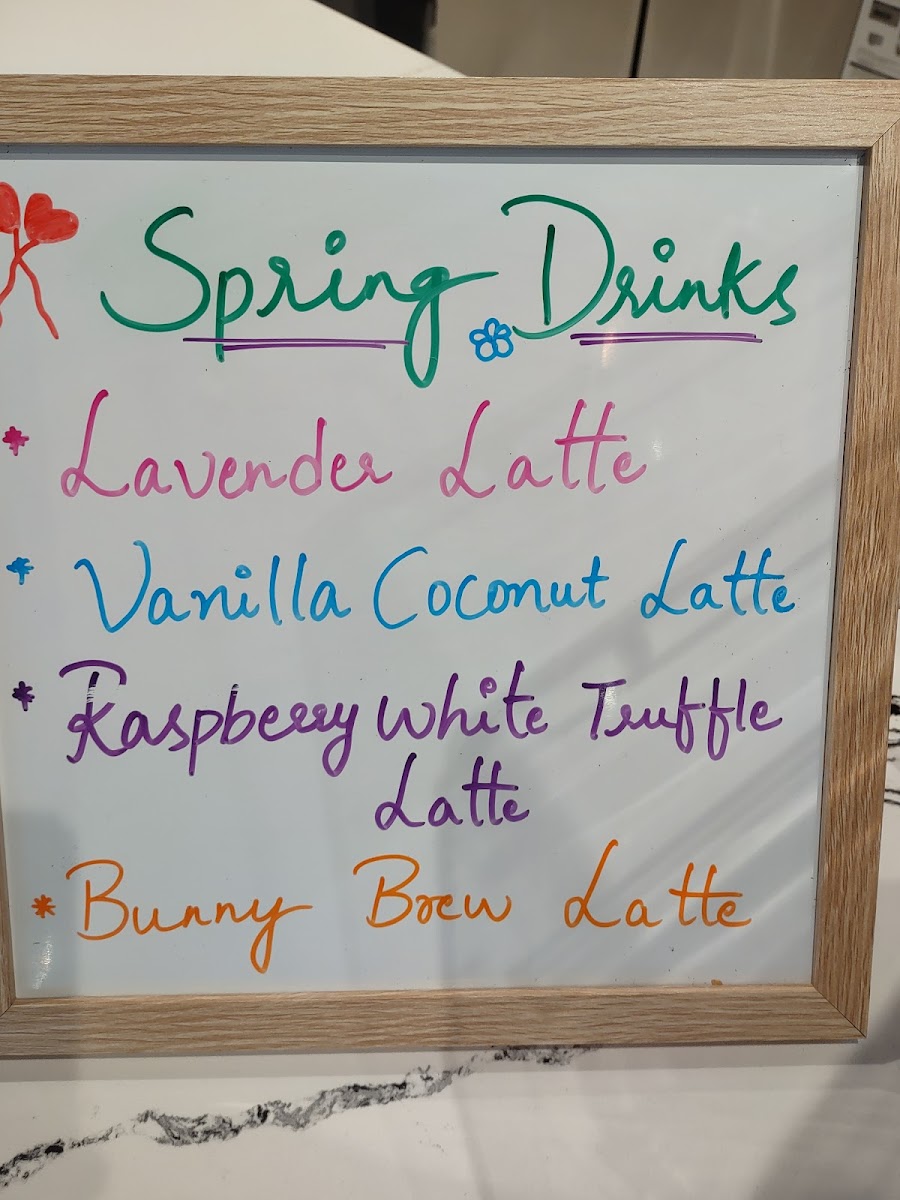 Spring Drinks
* Lavender Latte
* Vanilla Coconut Latte
* Raspberry White Truffle
Latte
* Bunny Brew Latte